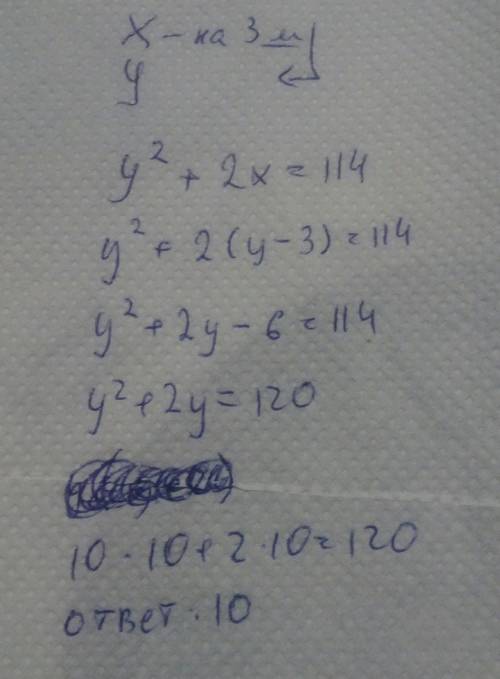 x - на 3 м
y
y² + 2x = 114
y² + 2(y - 3) = 114
y² + 2y - 6 = 114
y² + 2y = 120
10 · 10 + 2 · 10 = 120
ответ: 10